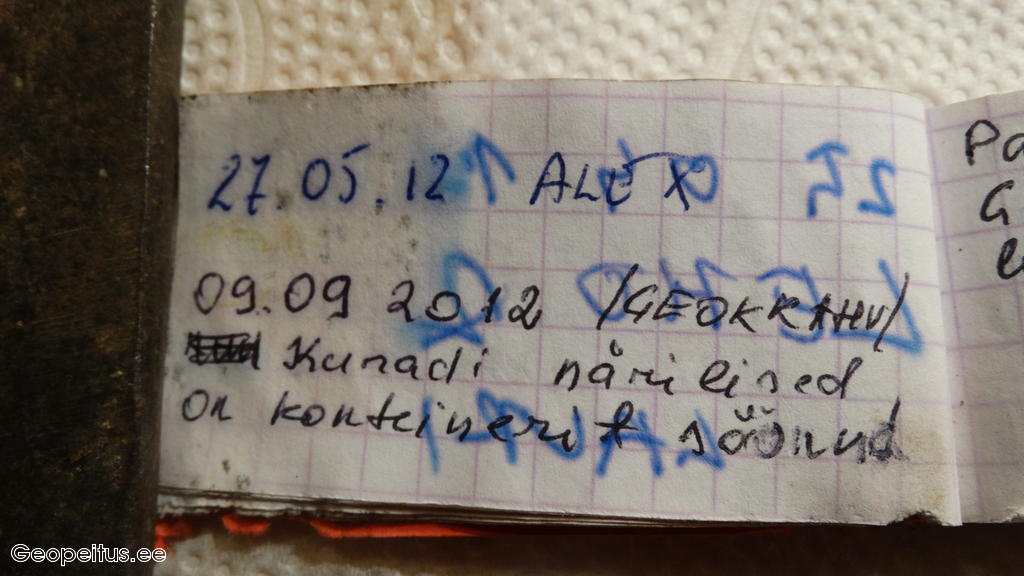 27.05.12 ALEX
09.09 2012 /GEOKRAHV/
Kuradi närilised
on konteinerit söönud
Pa
G
Geopeitus.ee